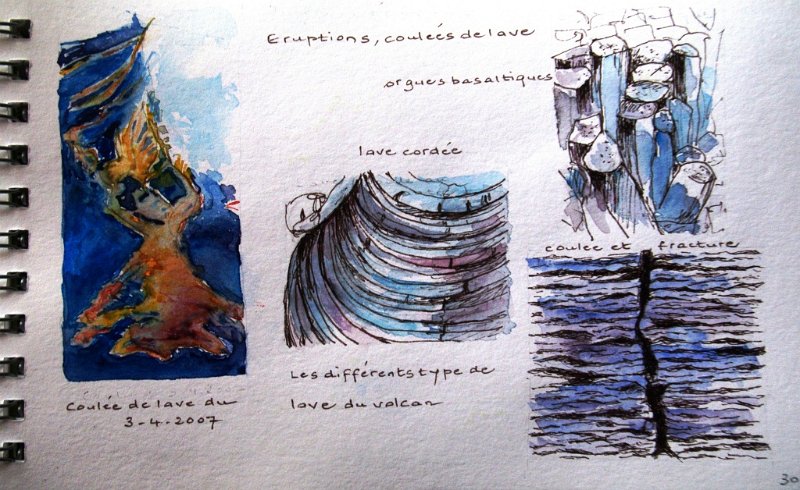 Eruptions, couleés de lave
orgues basaltiques
lave cordée
coulée et fracture
Les différents type de
lave du volcan
Coulée de lave du
3-4-2007
30